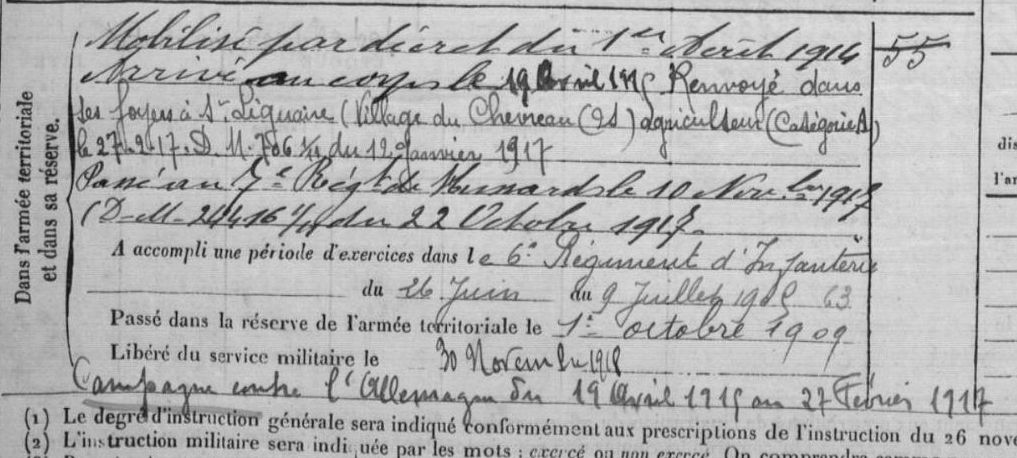 Mobilisé par décret du 1er Août 1914 55
Arrivé au corps le 19 Avril 1915 Renvoyé dans
ses foyers à St Liguaire (Village du Chevreau (2S) agriculteur (Catégorie A)
le 27-2-17. D. M. 706 1/11 du 12 Janvier 1917
Passé au 7e Régt de Hussards le 10 Novbre 1917
(D-M- 24416 1/11 du 22 Octobre 1917.
Dans l'armée territoriale
et dans sa réserve.
A accompli une période d'exercices dans le 6e Régiment d'Infanterie
du 26 Juin au 9 Juillet 1905 63
Passé dans la réserve de l'armée territoriale le 1er octobre 1909
Libéré du service militaire le 30 Novembre 1918
Campagne contre l'Allemagne du 19 Avril 1915 au 27 Février 1917
(1) Le degré d'instruction générale sera indiqué conformément aux prescriptions de l'instruction du 26 nove
(2) L'instruction militaire sera indiquée par les mots : exercé ou non exercé. On
dis
l'ar